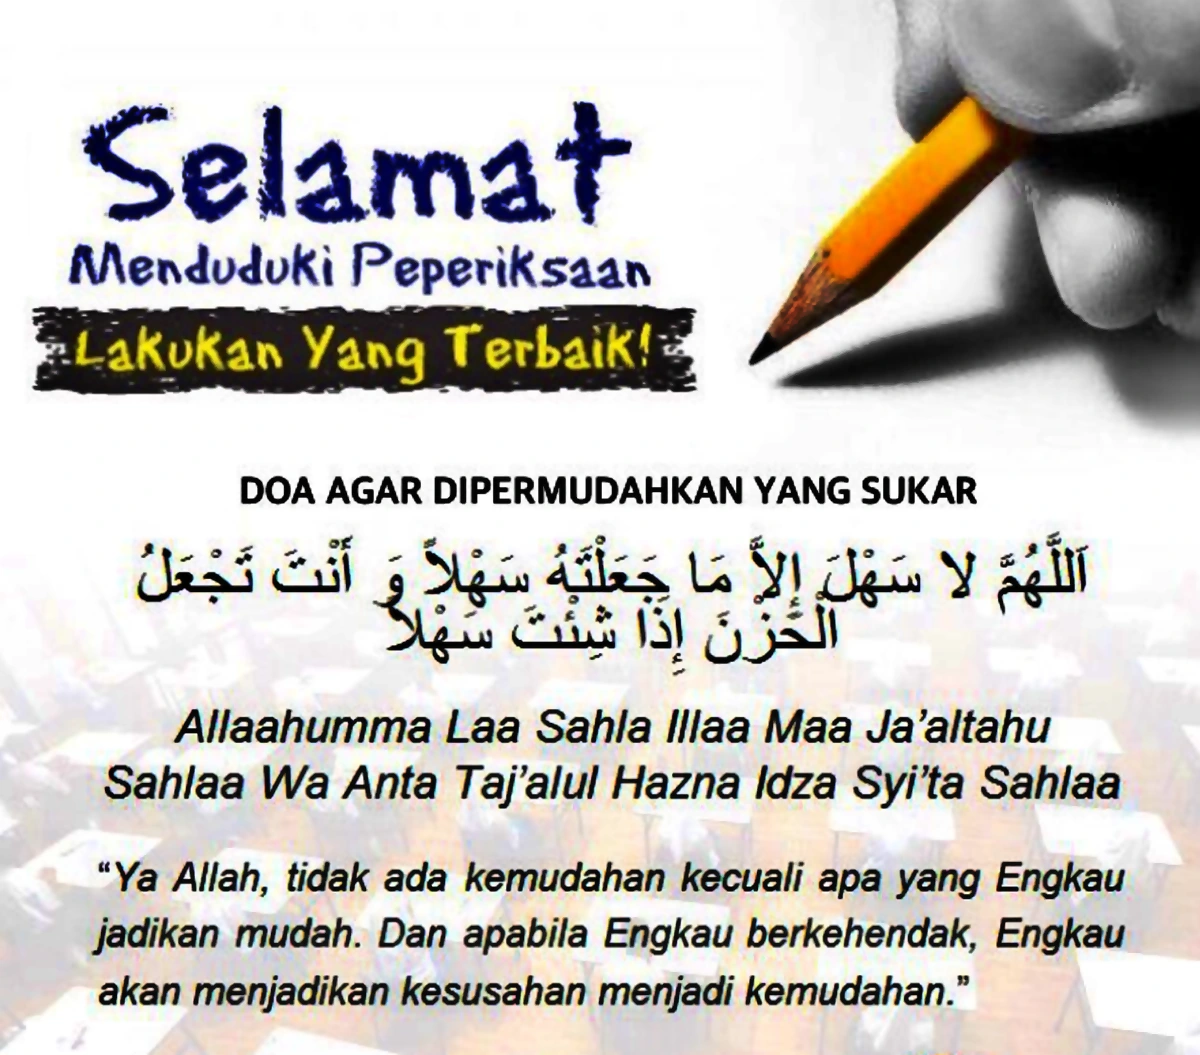 Selamat
Menduduki Peperiksaan
Lakukan Yang Terbaik!
DOA AGAR DIPERMUDAHKAN YANG SUKAR
اَللَّهُمَّ لا سَهْلَ إِلاَّ مَا جَعَلْتَهُ سَهْلاً وَ أَنْتَ تَجْعَلُ
الْحَزْنَ إِذَا شِئْتَ سَهْلاً
Allaahumma Laa Sahla Illaa Maa Ja’altahu
Sahlaa Wa Anta Taj’alul Hazna Idza Syi’ta Sahlaa
“Ya Allah, tidak ada kemudahan kecuali apa yang Engkau
jadikan mudah. Dan apabila Engkau berkehendak, Engkau
akan menjadikan kesusahan menjadi kemudahan.”